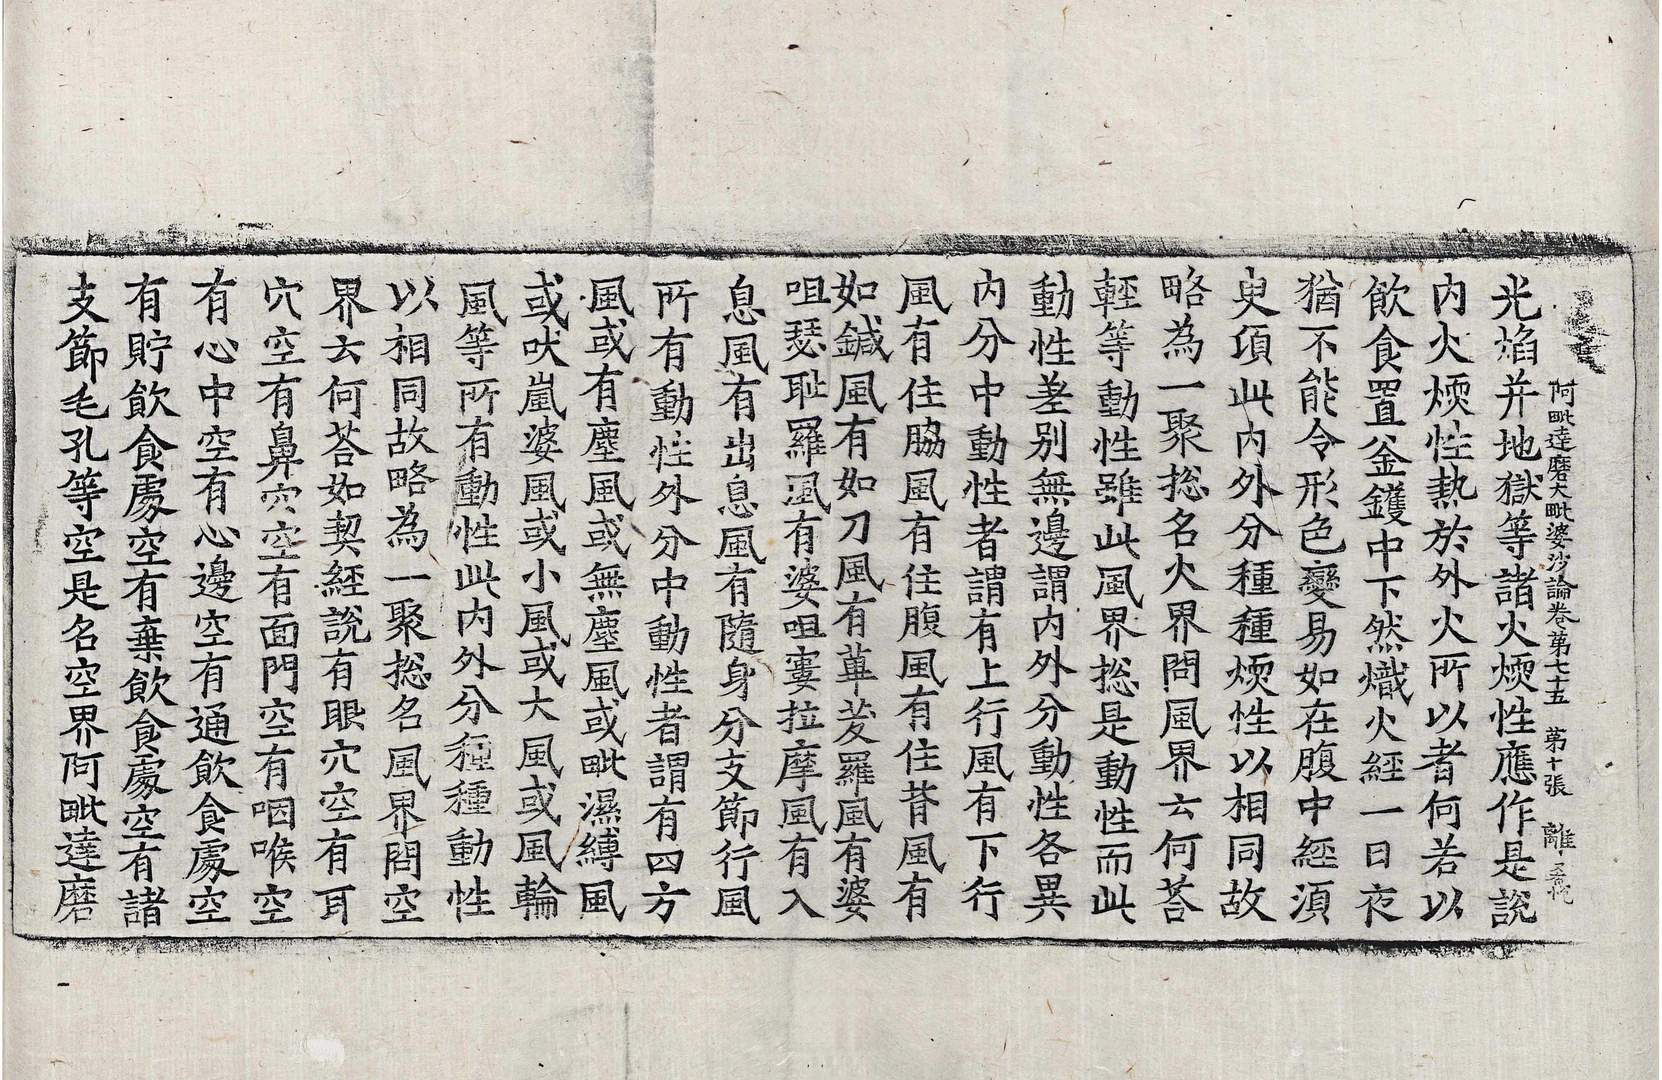 阿毗達磨大毗婆沙論卷第七十五　第十張　離
光焰并地獄等諸火煗性應作是說
内火煗性熱於外火所以者何若以
飲食置釜鑊中下然熾火經一日夜
猶不能令形色變易如在腹中經湏
臾項此内外分種種煗性以相同故
略為一聚捴名火界問風界云何荅
輕等動性雖此風界捴是動性而此
動性差别無邊謂内外分動性各異
内分中動性者謂有上行風有下行
風有住脇風有住腹風有住背風有
如鍼風有如刀風有蓽茇羅風有婆
咀瑟耻羅風有婆咀寠拉摩風有入
息風有出息風有隨身分支節行風
所有動性外分中動性者謂有四方
風或有塵風或無塵風或毗濕縛風
或吠嵐婆風或小風或大風或風輪
風等所有動性此内外分種種動性
以相同故略為一聚捴名風界問空
界云何荅如契經說有眼穴空有耳
穴空有鼻穴空有面門空有咽喉空
有心中空有心邊空有通飲食處空
有貯飲食處空有棄飲食處空有諸
支節毛孔等空是名空界阿毗達磨